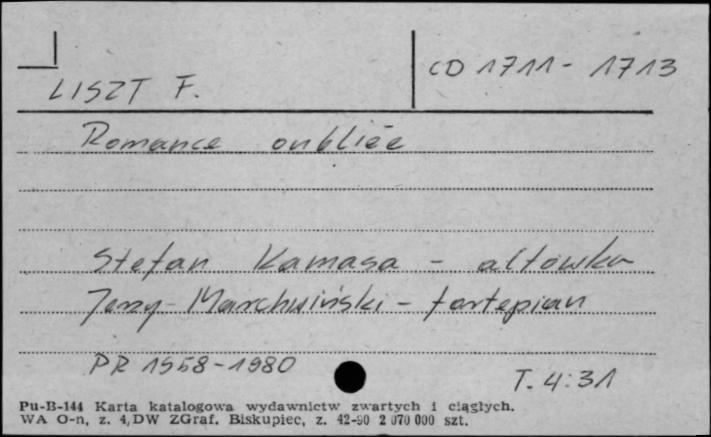 LISZT F.
CD 1711 - 1713
Romance oubliée
Stefan Kamasa - altówka
Jerzy Marchwiński - fortepian
PR 1958-1980
T. 4:31
Pu-B-144 Karta katalogowa wydawnictw zwartych i ciągłych.
WA O-n, z. 4, DW ZGraf. Biskupiec, z. 42-90 2 070 000 szt.